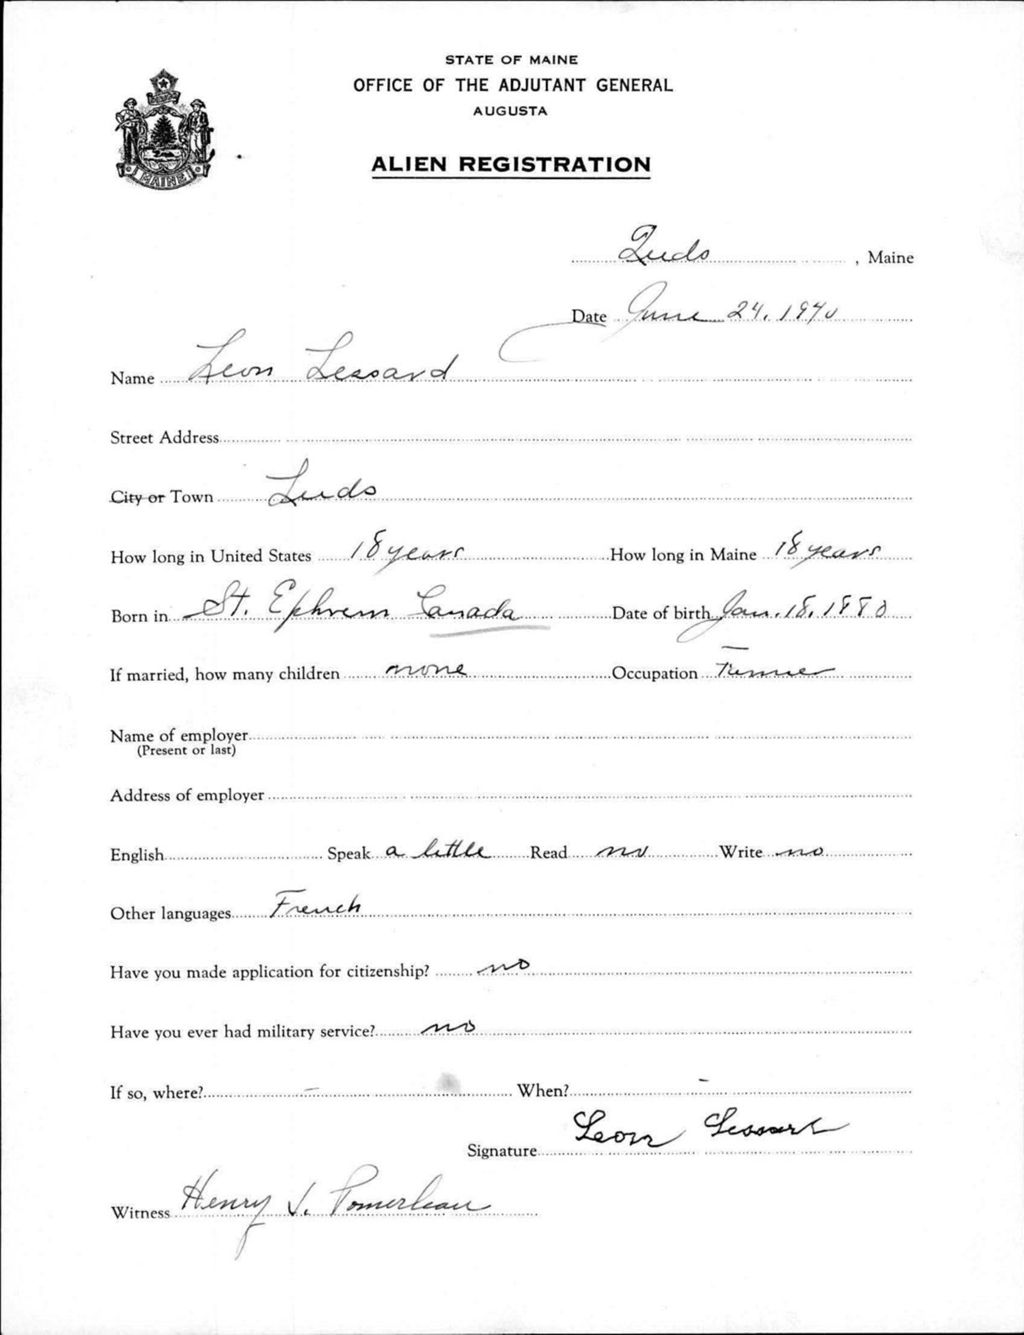 STATE OF MAINE
OFFICE OF THE ADJUTANT GENERAL
AUGUSTA
MAINE
ALIEN REGISTRATION
Leeds, Maine
Date June 24, 1940
Name Leon Lessard
Street Address
City or Town Leeds
How long in United States 18 years How long in Maine 18 years
Born in St. Ephrem Canada Date of birth Jan. 18, 1880
If married, how many children none Occupation
Name of employer
(Present or last)
Address of employer
English Speak a little Read no Write no
Other languages French
Have you made application for citizenship? no
Have you ever had military service? no
If so, where? – When? –
Signature Leon Lessard
Witness Henry J. Pomerleau